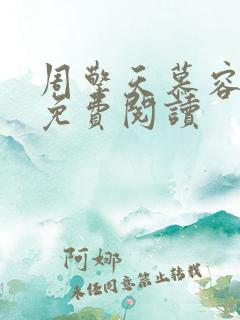 周擎天慕容
免費閱讀
阿娜
未经同意禁止转载